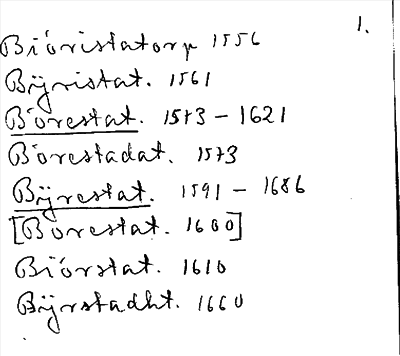 1.
Biöristatorp 1556
Bÿristat. 1561
Börestat. 1573 - 1621
Börestadat. 1573
Bÿrestat. 1591 - 1686
[Börestat. 1600]
Biörstat. 1610
Bÿrstadht. 1660